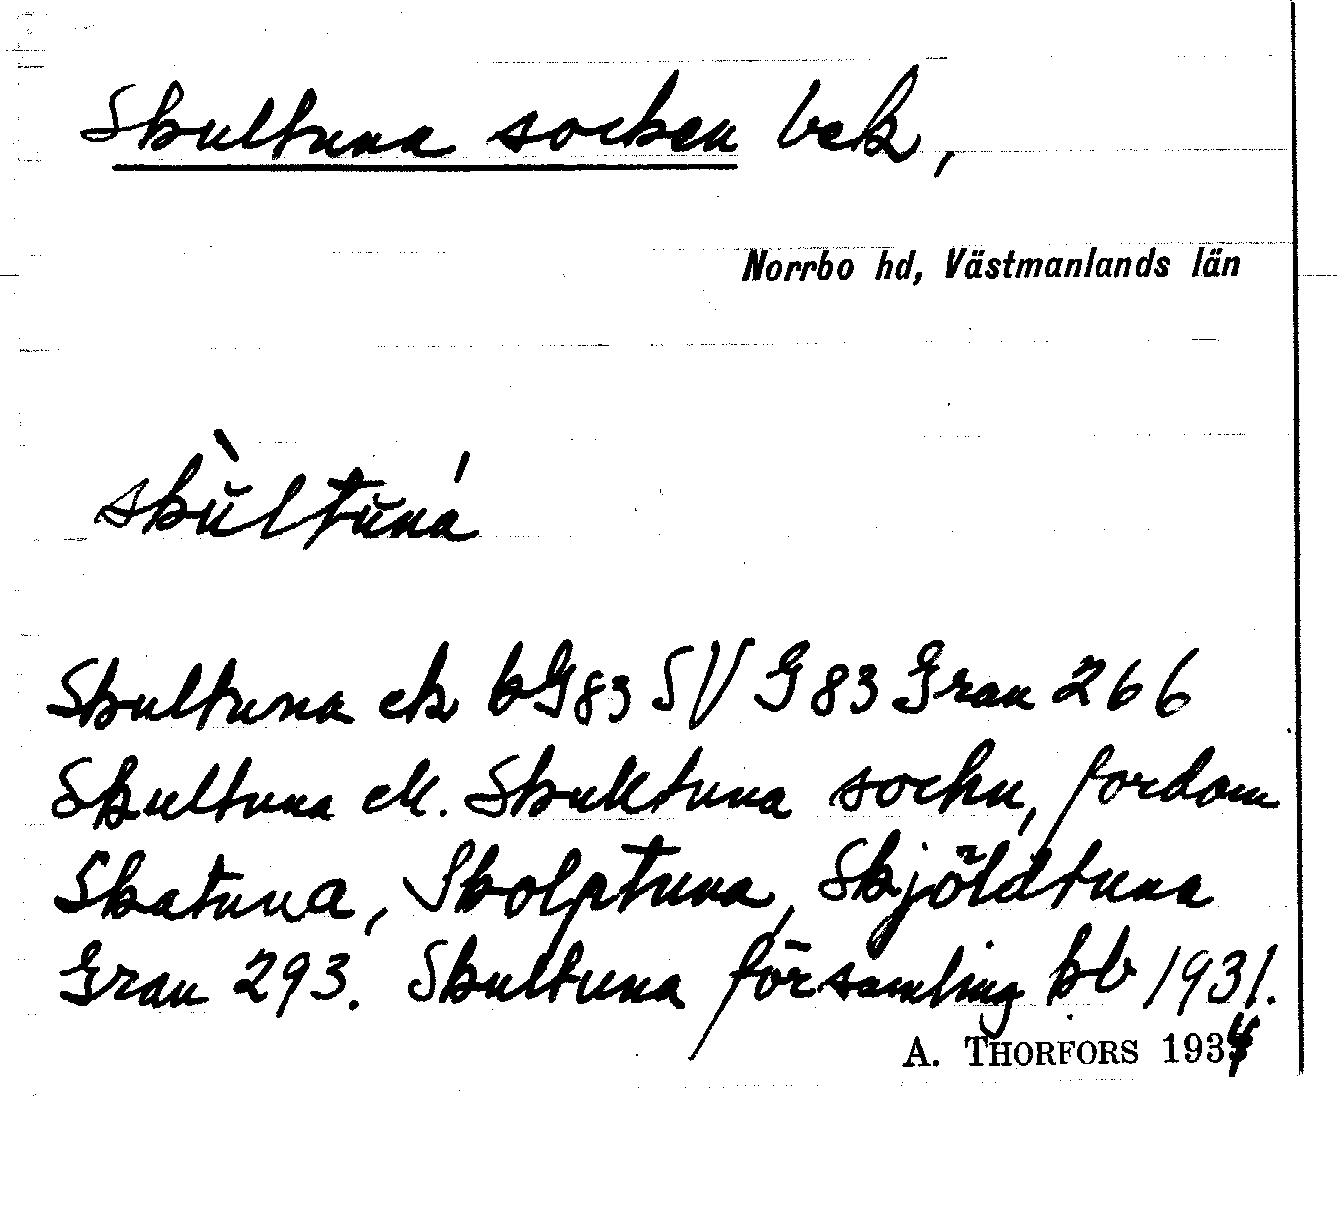 Skultuna socken bek,
Norrbo hd, Västmanlands län
skùltuná
Skultuna ek bG83 SV G 83 Gran 266
Skultuna ek. Skuktuna sockn, fordom
Skatuna, Skolptuna, Skjöldtuna
Gran 293. Skultuna församling kb 1931.
A. THORFORS 1934